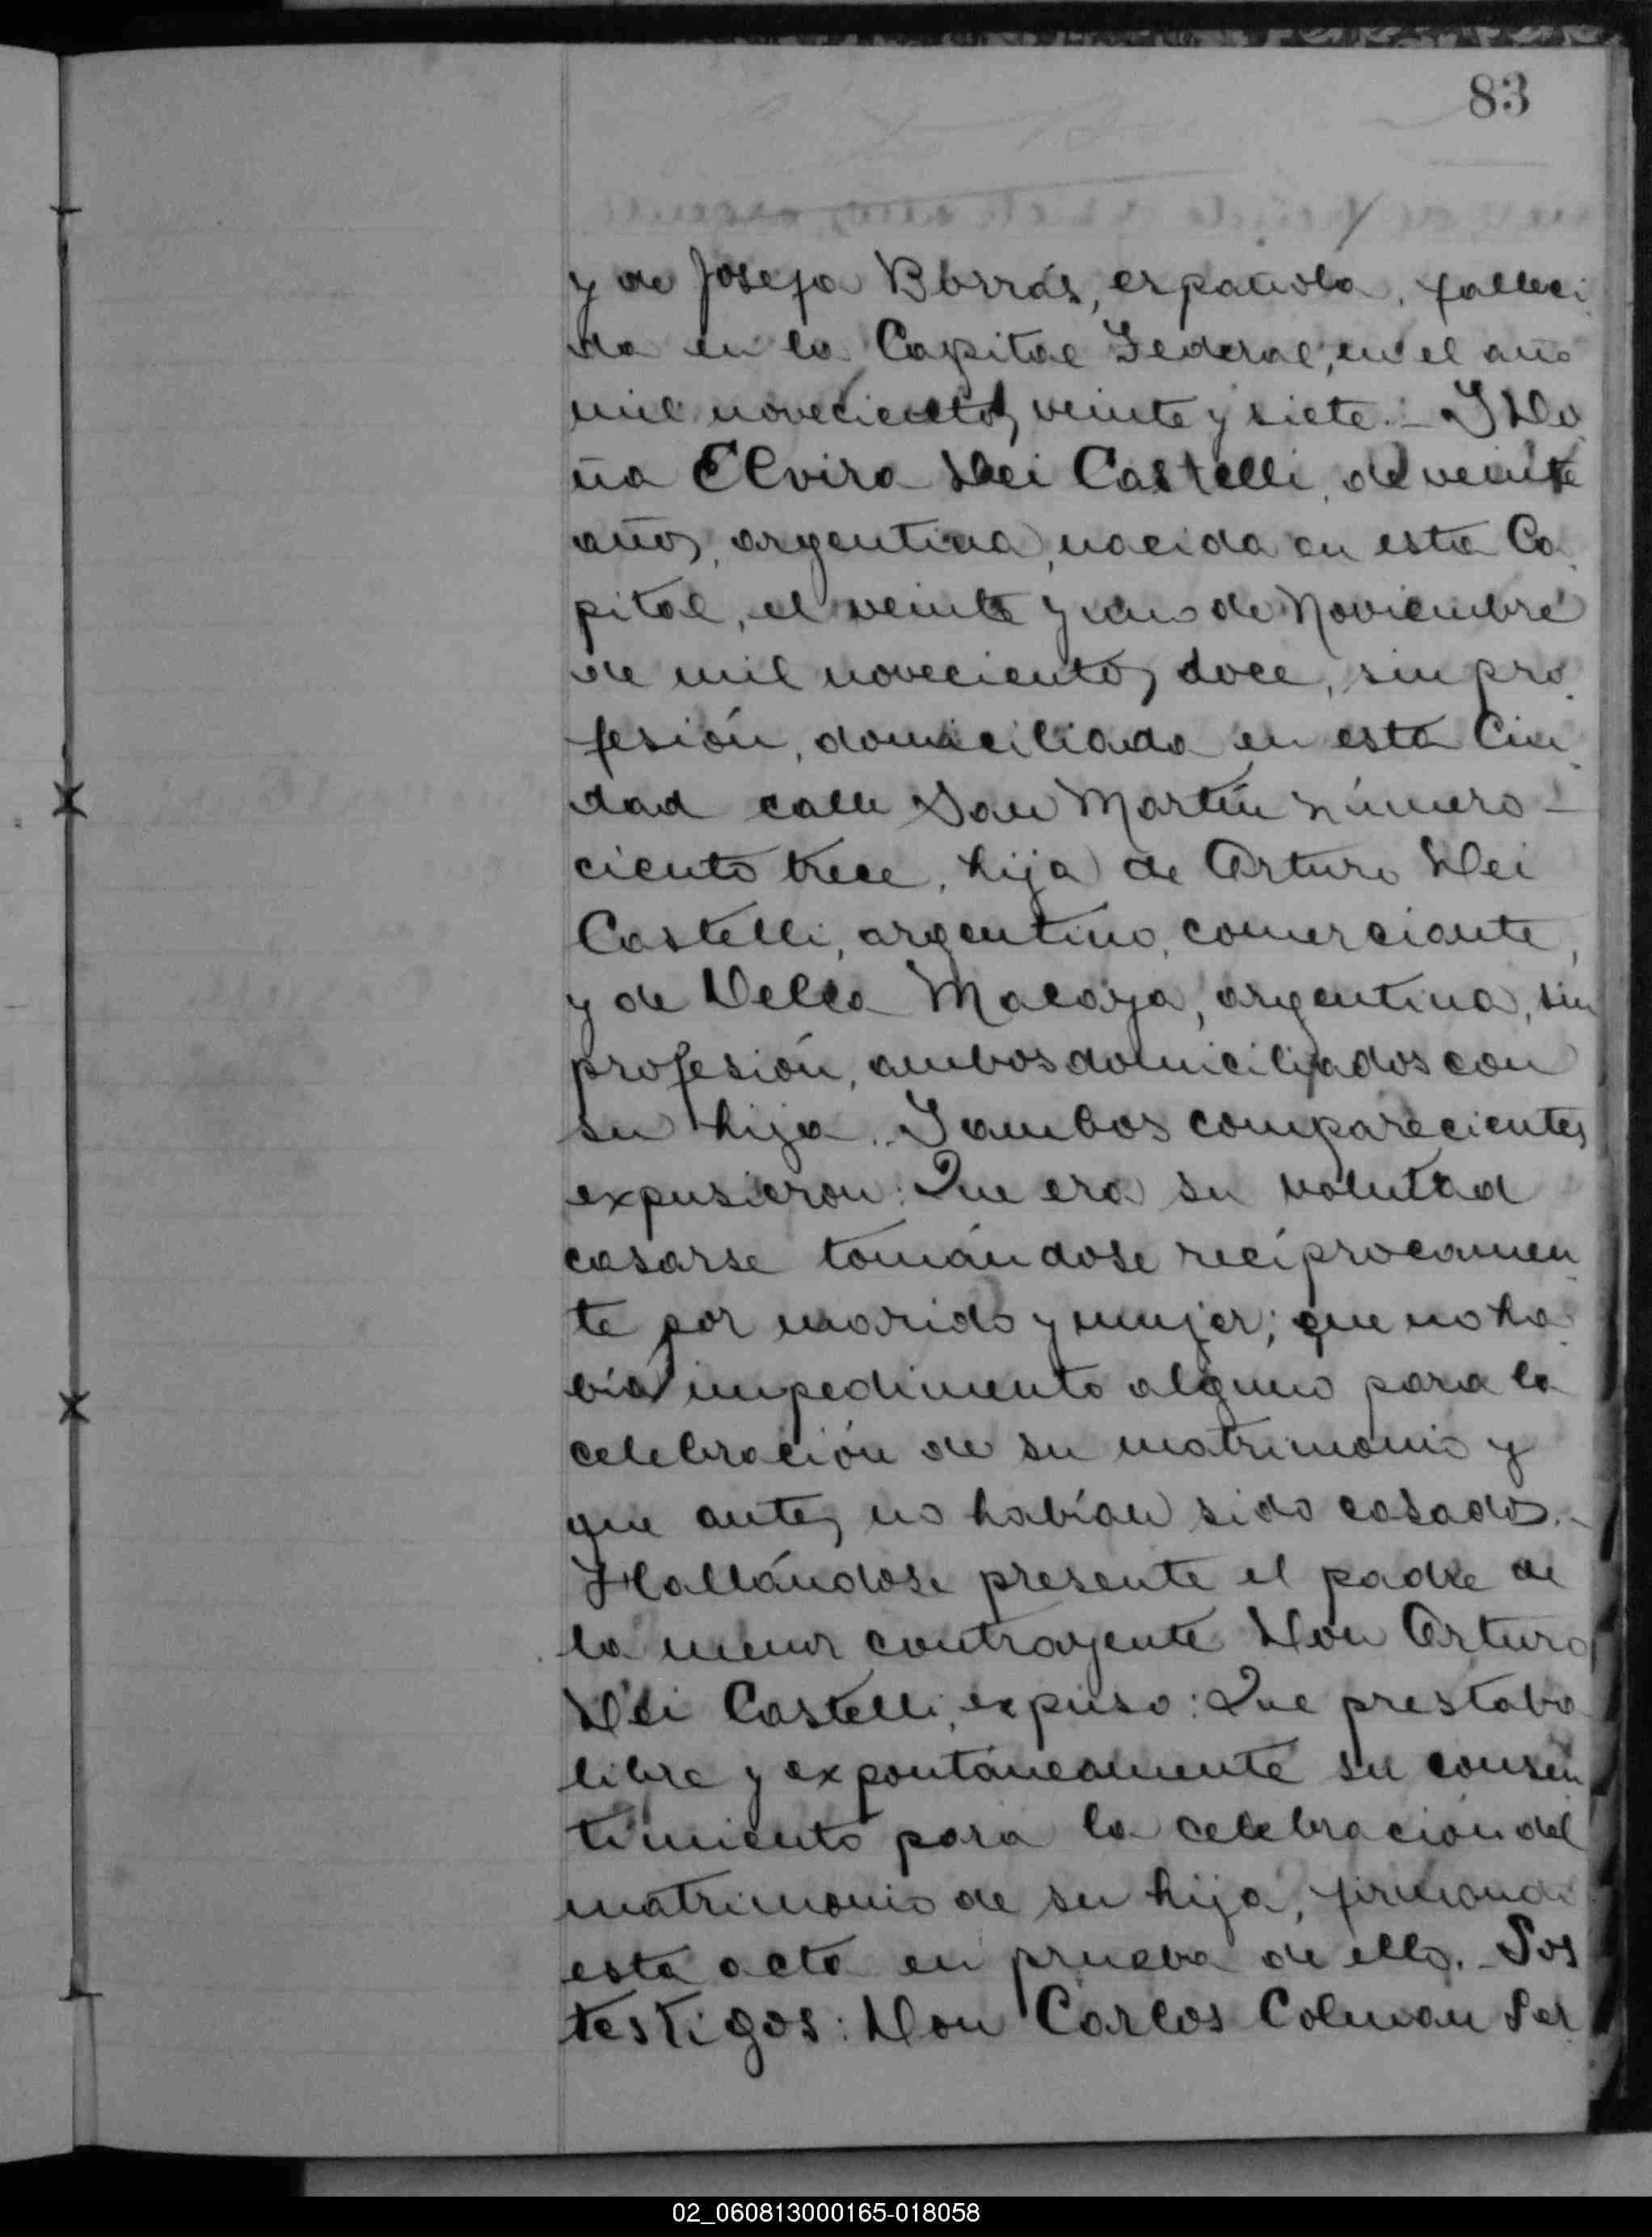 83
y de Josefa Borrás, española, falleci
da en la Capital Federal, en el año
mil novecientos veinte y siete.- Y Do
ña Elvira Dei Castelli, de veinte
años, argentina, nacida en esta Ca
pital, el veinte y uno de Noviembre
de mil novecientos doce, sin pro
fesión, domiciliada en esta Ciu
dad calle San Martín número -
ciento trece, hija de Arturo Dei
Castelli, argentino, comerciante,
y de Delia Macaya, argentina, sin
profesión, ambos domiciliados con
su hija.. Y ambos comparecientes
expusieron: Que era su voluntad
casarse tomándose recíprocamen
te por marido y mujer; que no ha
bía impedimento alguno para la
celebración de su matrimonio y
que antes no habían sido casados.-
Hallándose presente el padre de
la menor contrayente Don Arturo
Dei Castelli, expuso: Que prestaba
libre y expontáneamente su consen
timiento para la celebración del
matrimonio de su hija, firmando
esta acta en prueba de ello.- Los
testigos: Don Carlos Colman Ler
02_060813000165-018058